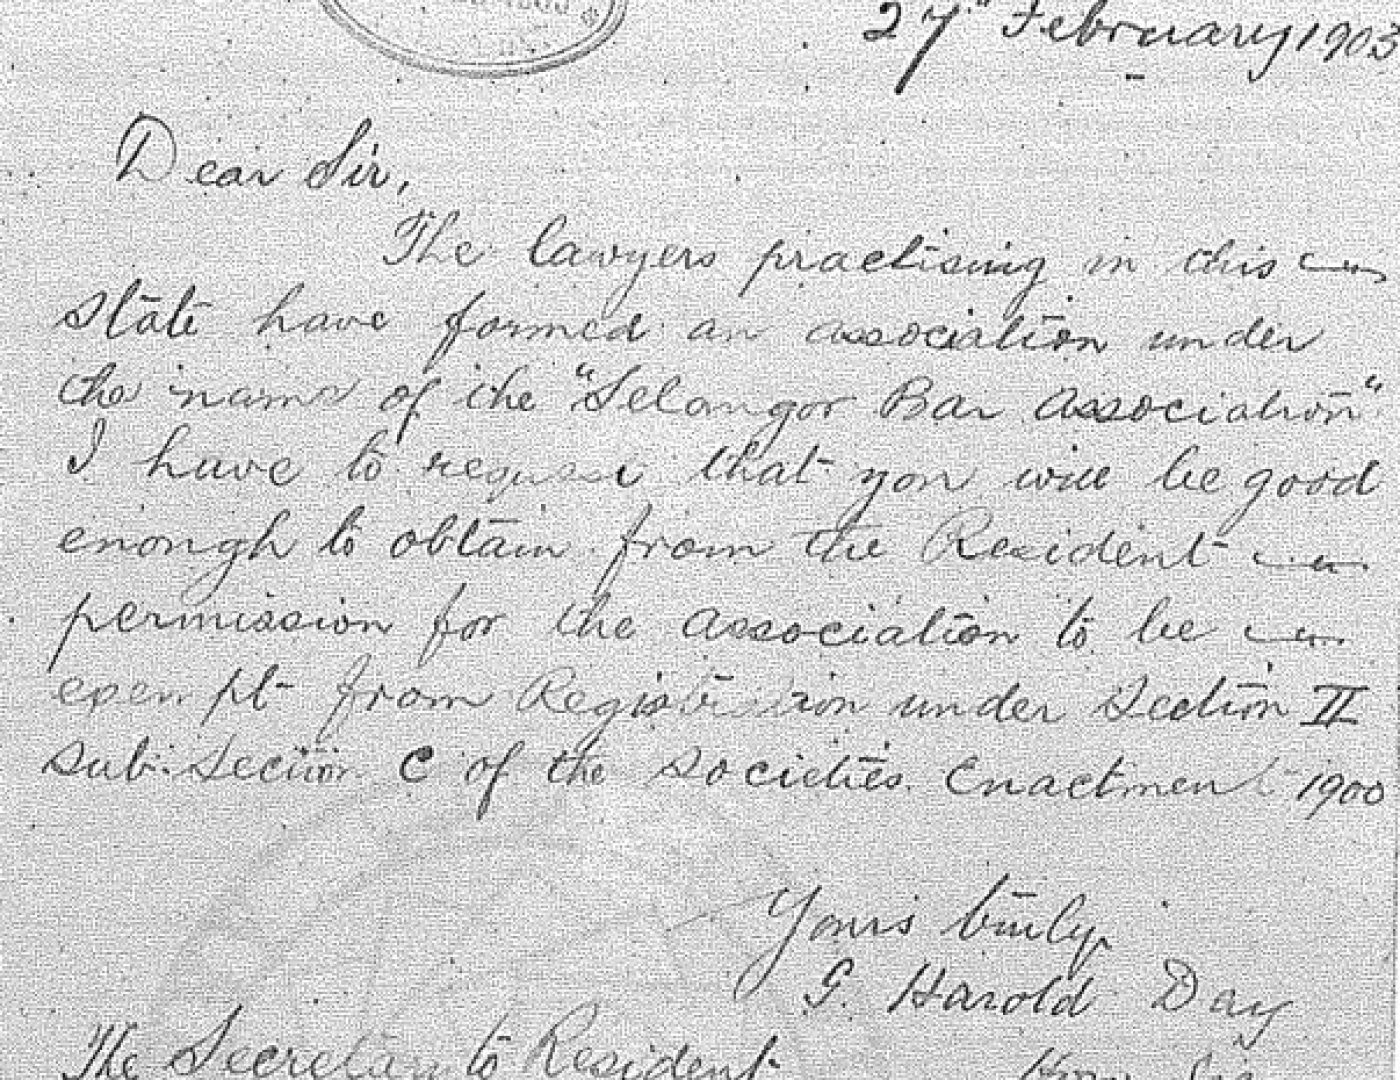 27th February 1903
Dear Sir,
The lawyers practising in this
state have formed an association under
the name of the "Selangor Bar Association"
I have to request that you will be good
enough to obtain from the Resident
permission for the association to be
exempt from Registration under Section II
sub-section C of the Societies Enactment 1900
Yours truly,
G. Harold Day
The Secretary to Resident
Hony. Sec